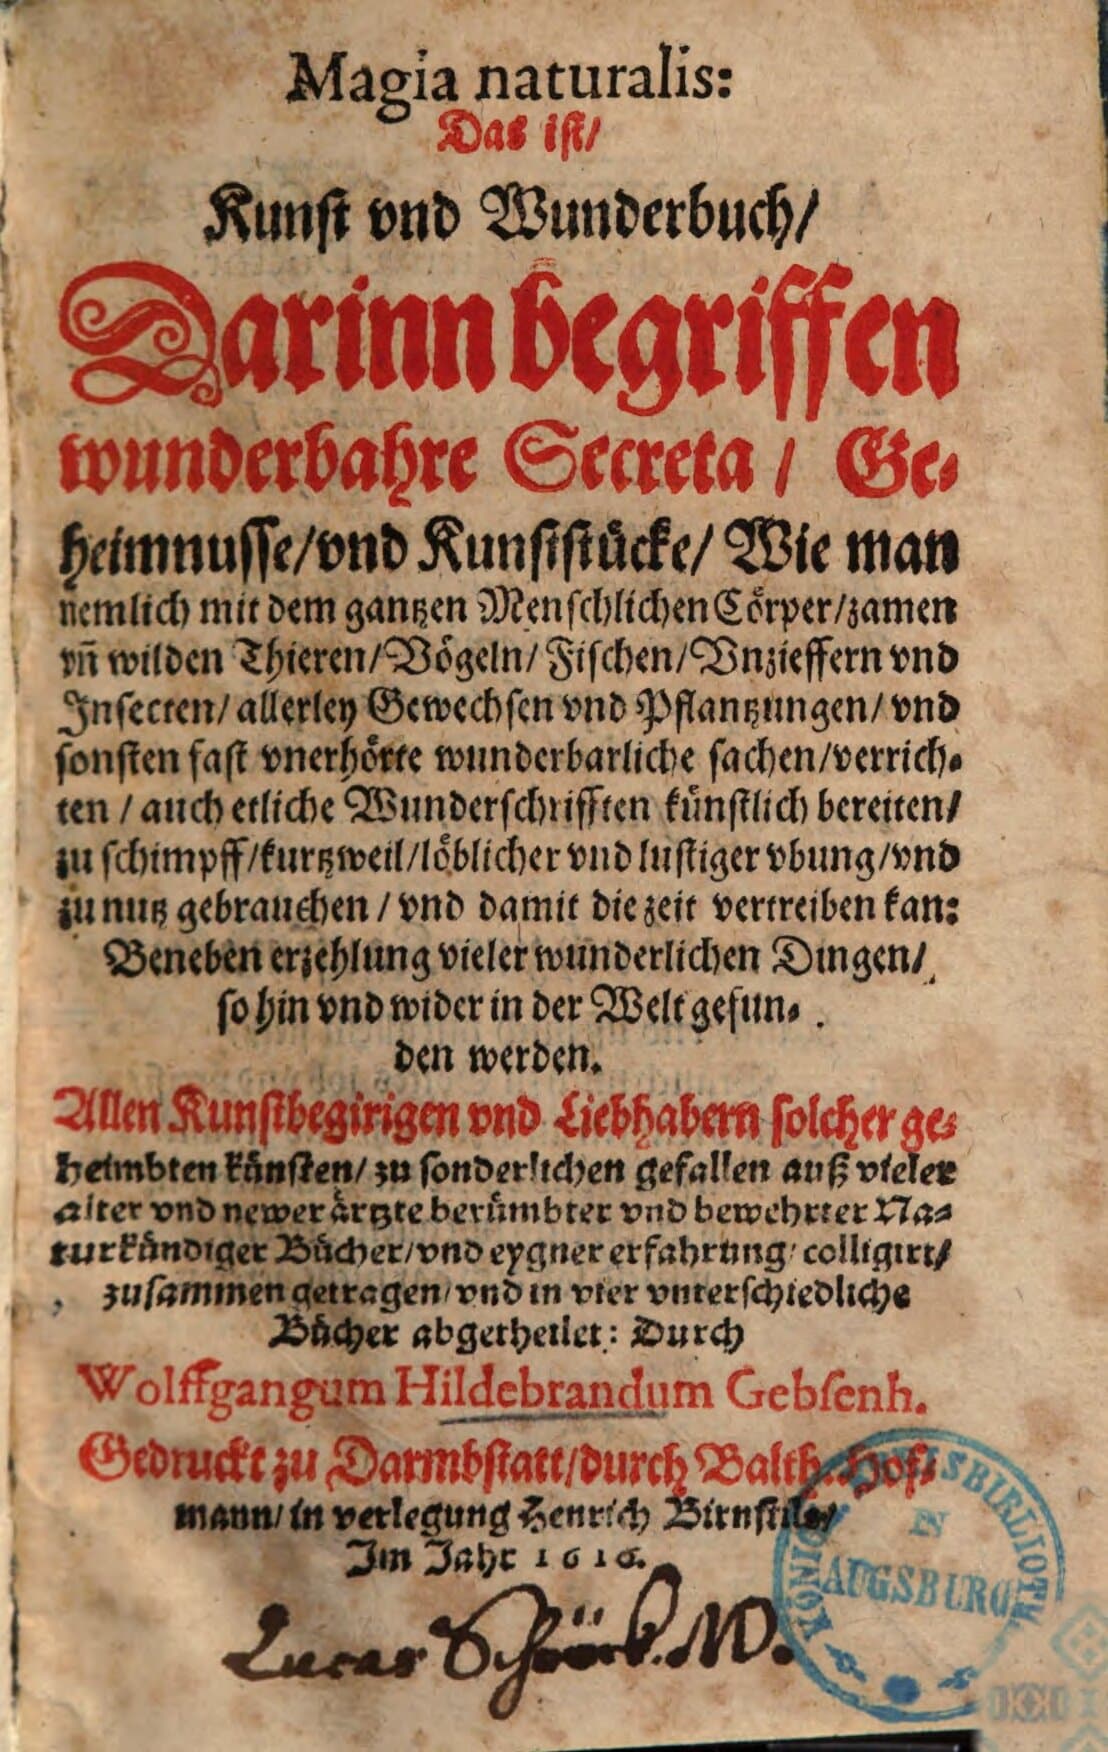 Magia naturalis:
Das ist/
Kunst vnd Wunderbuch/
Darinn begriffen
wunderbahre Secreta / Ge-
heimnusse/vnd Kunststücke/ Wie man
nemlich mit dem gantzen Menschlichen Cörper/zamen
vñ wilden Thieren/Vögeln/ Fischen/Vnzieffern vnd
Insecten/ allerley Gewechsen vnd Pflantzungen/ vnd
sonsten fast vnerhörte wunderbarliche sachen/verrich-
ten / auch etliche Wunderschrifften künstlich bereiten/
zu schimpff/kurtzweil/löblicher vnd lustiger vbung/vnd
zu nutz gebrauchen / vnd damit die zeit vertreiben kan:
Beneben erzehlung vieler wunderlichen Dingen/
so hin vnd wider in der Welt gefun-
den werden.
Allen Kunstbegirigen vnd Liebhabern solcher ge-
heimbten künsten/ zu sonderlichen gefallen auß vieler
alter vnd newer ärtzte berümbter vnd bewehrter Na-
turkündiger Bücher/vnd eygner erfahrung/ colligirt/
zusammen getragen/vnd in vier vnterschiedliche
Bücher abgetheilet: Durch
Wolffgangum Hildebrandum Gebsenh.
Gedruckt zu Darmbstatt/durch Balth. Hof-
mann/in verlegung Henrich Birnstils/
Im Jahr 1616.
Lucas Schröck. MD.
KÖNIGL. KREISBIBLIOTHEK
IN
AUGSBURG